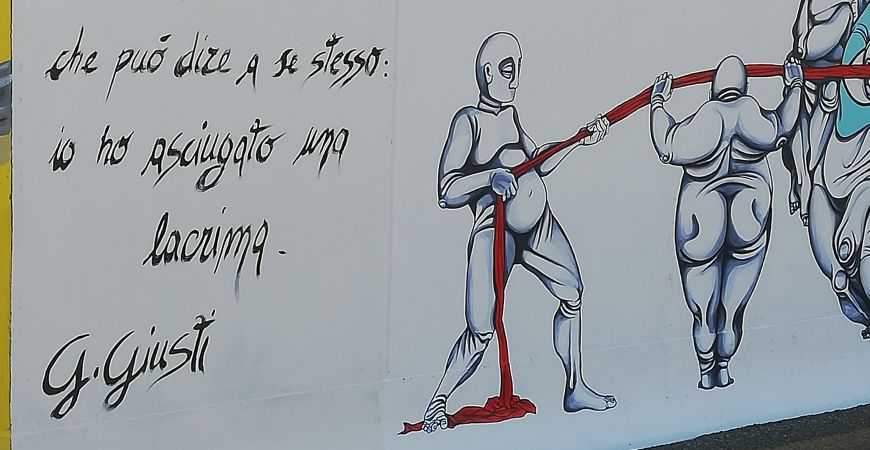 che può dire a se stesso:
io ho asciugato una
lacrima.
G. Giusti